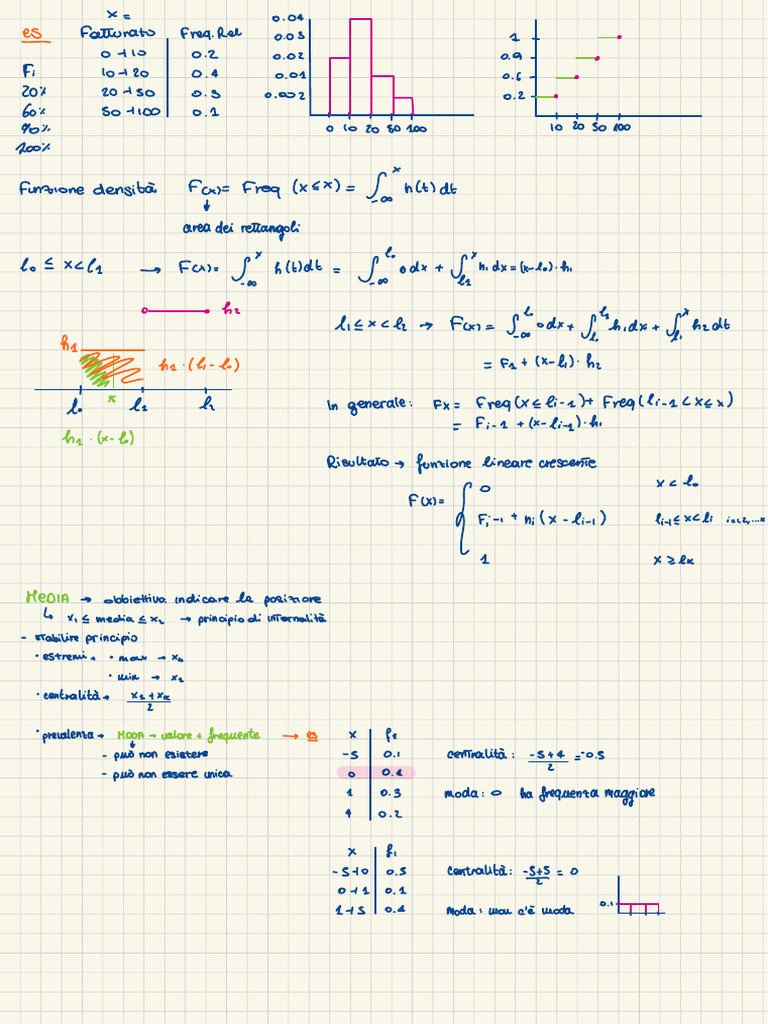 es
x =
Fatturato Freq. Rel
Fi
0⊣10 0.2
20% 10⊣20 0.4
60% 20⊣50 0.3
90% 50⊣100 0.1
100%
0.04
0.03
0.02
0.01
0.002
0 10 20 50 100
1
0.9
0.6
0.2
10 20 50 100
Funzione densità F(x) = Freq (X≤x) = ∫_{-∞}^{x} h(t) dt
↓
area dei rettangoli
l₀ ≤ x < l₁ → F(x) = ∫_{-∞}^{x} h(t) dt = ∫_{-∞}^{l₀} 0 dx + ∫_{l₁}^{x} h₁ dx = (x-l₀)·h₁
h₂
h₁
h₁·(l₁-l₀)
l₀ x l₁ l₂
h₁·(x-l₀)
l₁ ≤ x < l₂ → F(x) = ∫_{-∞}^{l₀} 0 dx + ∫_{l₀}^{l₁} h₁ dx + ∫_{l₁}^{x} h₂ dt
= F₁ + (x-l₁)·h₂
In generale: Fx = Freq(x ≤ li-1) + Freq(li-1 < x ≤ x)
= Fi-1 + (x-li-1)·hi
Risultato → funzione lineare crescente
F(x) = { 0 x < l₀
Fi-1 + hi (x - li-1) li-1 ≤ x < li i=1,2,...k
1 x ≥ lk
MEDIA → obbiettivo: indicare la posizione
↳ x₁ ≤ media ≤ x₂ → principio di internalità
- stabilire principio
• estremi → • max → xk
• min → x₁
• centralità → x₁+xk / 2
• prevalenza → MODA → valore + frequente → es
- può non esistere
- può non essere unica
x f₁
-5 0.1
0 0.4
1 0.3
4 0.2
centralità: -5+4 / 2 = -0.5
moda: 0 ha frequenza maggiore
x f₁
-5⊣0 0.5
0⊣1 0.1
1⊣5 0.4
centralità: -5+5 / 2 = 0
moda: non c'è moda
0.1